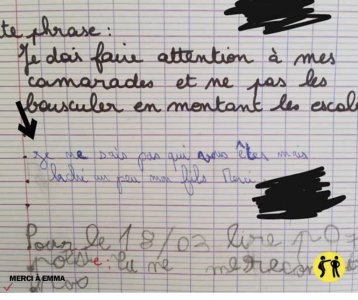 te phrase :
Je dois faire attention à mes
camarades et ne pas les
bousculer en montant les escal
- Je ne sais pas qui vous êtes mais
laché un peu mon fils Merci
Pour le 18/03 lire p 97
poésie : lu
MERCI À EMMA